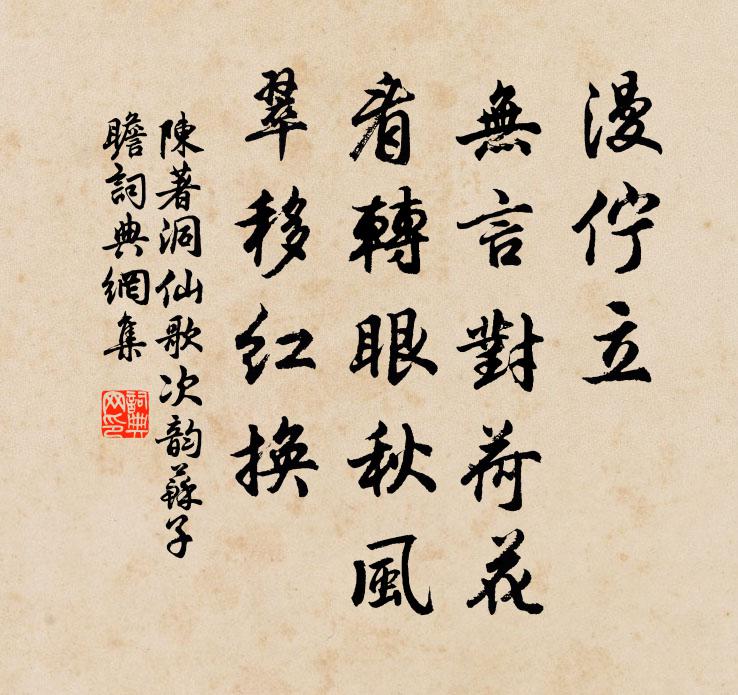 漫佇立
無言對荷花
看轉眼秋風
翠移紅換
陳著洞仙歌次韵蘇子
瞻詞典網集
詞典
网印